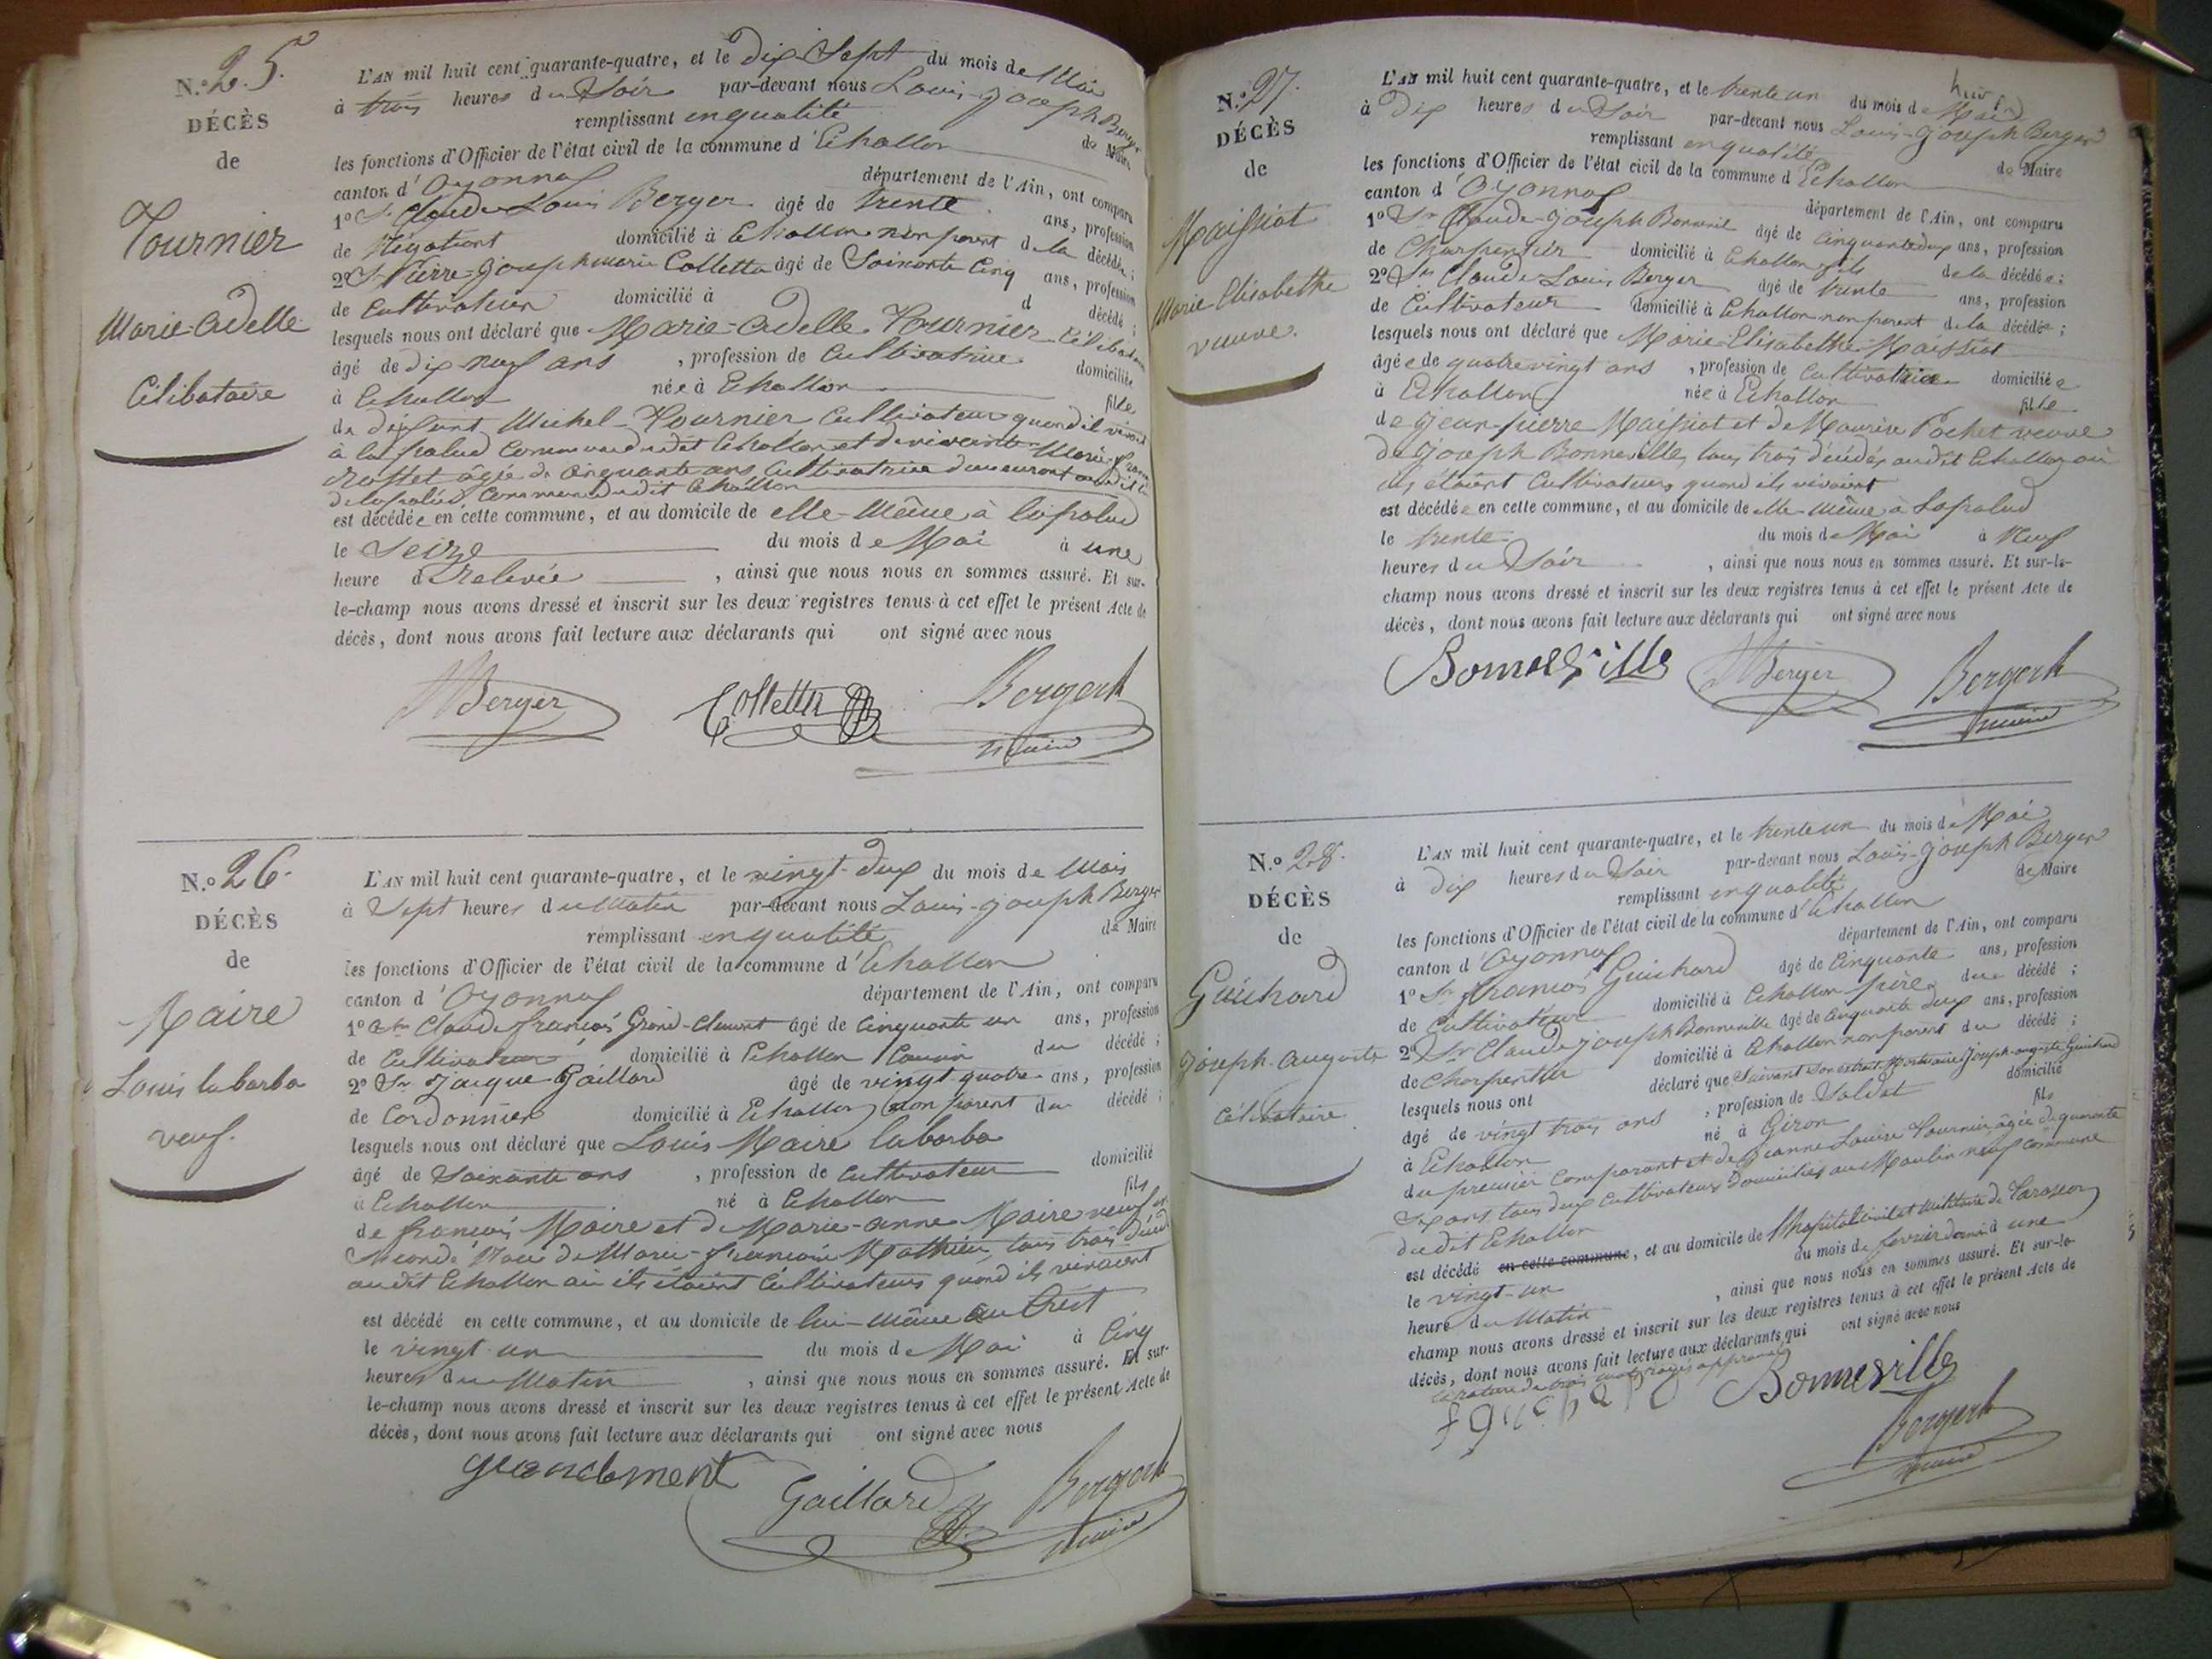 N.º 25.
DÉCÈS
de
Tournier
Marie-Adelle
Célibataire
L'AN mil huit cent quarante-quatre, et le dix Sept du mois de Mai
à trois heures du Soir par-devant nous Louis-Joseph Berger
remplissant en qualité de Maire
les fonctions d'Officier de l'état civil de la commune d'Echallon
canton d'Oyonnax département de l'Ain, ont comparu
1º Sr Claude Louis Berger âgé de trente ans, profession
de Négotiant domicilié à Echallon non parent de la décédée ;
2º Sr Pierre-Joseph marie Colletta âgé de Soixante Cinq ans, profession
de Cultivateur domicilié à d décédé ;
lesquels nous ont déclaré que Marie-Adelle Tournier Célibataire
âgé de dix neuf ans , profession de Cultivatrice domiciliée
à Echallon née à Echallon fille
de défunt Michel Tournier Cultivateur quand il vivait
à la palud Commune dudit Echallon et de vivante Marie
Rosset âgée de Cinquante ans, Cultivatrice demeurant audit
de lapalud Commune dudit Echallon
est décédée en cette commune, et au domicile de elle-même à lapalud
le Seize du mois de Mai à une
heure d Relevée , ainsi que nous nous en sommes assuré. Et sur-
le-champ nous avons dressé et inscrit sur les deux registres tenus à cet effet le présent Acte de
décès, dont nous avons fait lecture aux déclarants qui ont signé avec nous
Berger Colletta Berger
maire
N.º 26.
DÉCÈS
de
Maire
Louis labarba
veuf.
L'AN mil huit cent quarante-quatre, et le vingt-deux du mois de Mais
à Sept heures du Matin par-devant nous Louis-Joseph Berger
remplissant en qualité de Maire
les fonctions d'Officier de l'état civil de la commune d'Echallon
canton d'Oyonnax département de l'Ain, ont comparu
1º Claude françois Grand-Clément âgé de Cinquante un ans, profession
de Cultivateur domicilié à Echallon Cousin du décédé ;
2º Sr Jaque Gaillard âgé de vingt quatre ans, profession
de Cordonnier domicilié à Echallon non parent du décédé ;
lesquels nous ont déclaré que Louis Maire labarba
âgé de Soixante ans , profession de Cultivateur domicilié
à Echallon né à Echallon fils
de françois Maire et de Marie-anne Maire veuf en
Seconde Noce de Marie-françoise Mathieu, tous trois décédés
audit Echallon où ils étaient Cultivateurs quand ils vivaient
est décédé en cette commune, et au domicile de lui-même au Crêt
le vingt un du mois de Mai à Cinq
heures du Matin , ainsi que nous nous en sommes assuré. Et sur-
le-champ nous avons dressé et inscrit sur les deux registres tenus à cet effet le présent Acte de
décès, dont nous avons fait lecture aux déclarants qui ont signé avec nous
grandclement Gaillard Berger
maire
N.º 27.
DÉCÈS
de
Maissiat
Marie Elisabethe
veuve.
L'AN mil huit cent quarante-quatre, et le trente un du mois de Mai
à Dix heures du Soir par-devant nous Louis-Joseph Berger
remplissant en qualité de Maire
les fonctions d'Officier de l'état civil de la commune d'Echallon
canton d'Oyonnax département de l'Ain, ont comparu
1º Sr Claude-Joseph Bonnevil âgé de Cinquante deux ans, profession
de Charpentier domicilié à Echallon fils de la décédée ;
2º Sr Claude Louis Berger âgé de trente ans, profession
de Cultivateur domicilié à Echallon non parent de la décédée ;
lesquels nous ont déclaré que Marie-Elisabethe Maissiat
âgée de quatre vingt ans , profession de Cultivatrice domiciliée
à Echallon née à Echallon fille
de Jean-pierre Maissiat et de Maurise Pochet veuve
de Joseph Bonneville, tous trois décédés audit Echallon où
ils étaient Cultivateurs quand ils vivaient
est décédée en cette commune, et au domicile de elle-même à Lapalud
le trente du mois de Mai à Neuf
heures du Soir , ainsi que nous nous en sommes assuré. Et sur-le-
champ nous avons dressé et inscrit sur les deux registres tenus à cet effet le présent Acte de
décès, dont nous avons fait lecture aux déclarants qui ont signé avec nous
Bonneville Berger Berger
maire
N.º 28.
DÉCÈS
de
Guichard
Joseph-Auguste
Célibataire
L'AN mil huit cent quarante-quatre, et le trente un du mois de Mai
à dix heures du Soir par-devant nous Louis-Joseph Berger
remplissant en qualité de Maire
les fonctions d'Officier de l'état civil de la commune d'Echallon
canton d'Oyonnax département de l'Ain, ont comparu
1º Sr françois Guichard âgé de Cinquante ans, profession
de Cultivateur domicilié à Echallon père du décédé ;
2º Sr Claude Joseph Bonneville âgé de Cinquante deux ans, profession
de Charpentier domicilié à Echallon non parent du décédé ;
lesquels nous ont déclaré que Suivant Son extrait Mortuaire Joseph-auguste Guichard
âgé de vingt trois ans , profession de Soldat domicilié
à Echallon né à Giron fils
du premier Comparant et de Jeanne Louise Tournier âgée de quarante
Six ans, tous deux Cultivateurs domiciliés au Moulin neuf Commune
dudit Echallon
est décédé en cette commune, et au domicile de l'hopital Civil et Militaire de Tarascon
le vingt-un du mois de février dernier à une
heure du Matin , ainsi que nous nous en sommes assuré. Et sur-le-
champ nous avons dressé et inscrit sur les deux registres tenus à cet effet le présent Acte de
décès, dont nous avons fait lecture aux déclarants qui ont signé avec nous
la rature de trois mots rayés approuvé
Bonneville
Berger
maire